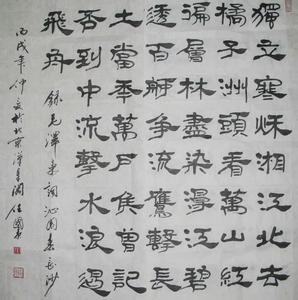 獨立寒秌湘江北去
橘子洲頭看萬山紅
徧層林盡染漫江碧
透百舸爭流鷹擊長
土當年萬戶侯曾記
否到中流擊水浪遏
飛舟 錄毛澤東詞沁園春長沙
丙戌年仲夏於北京